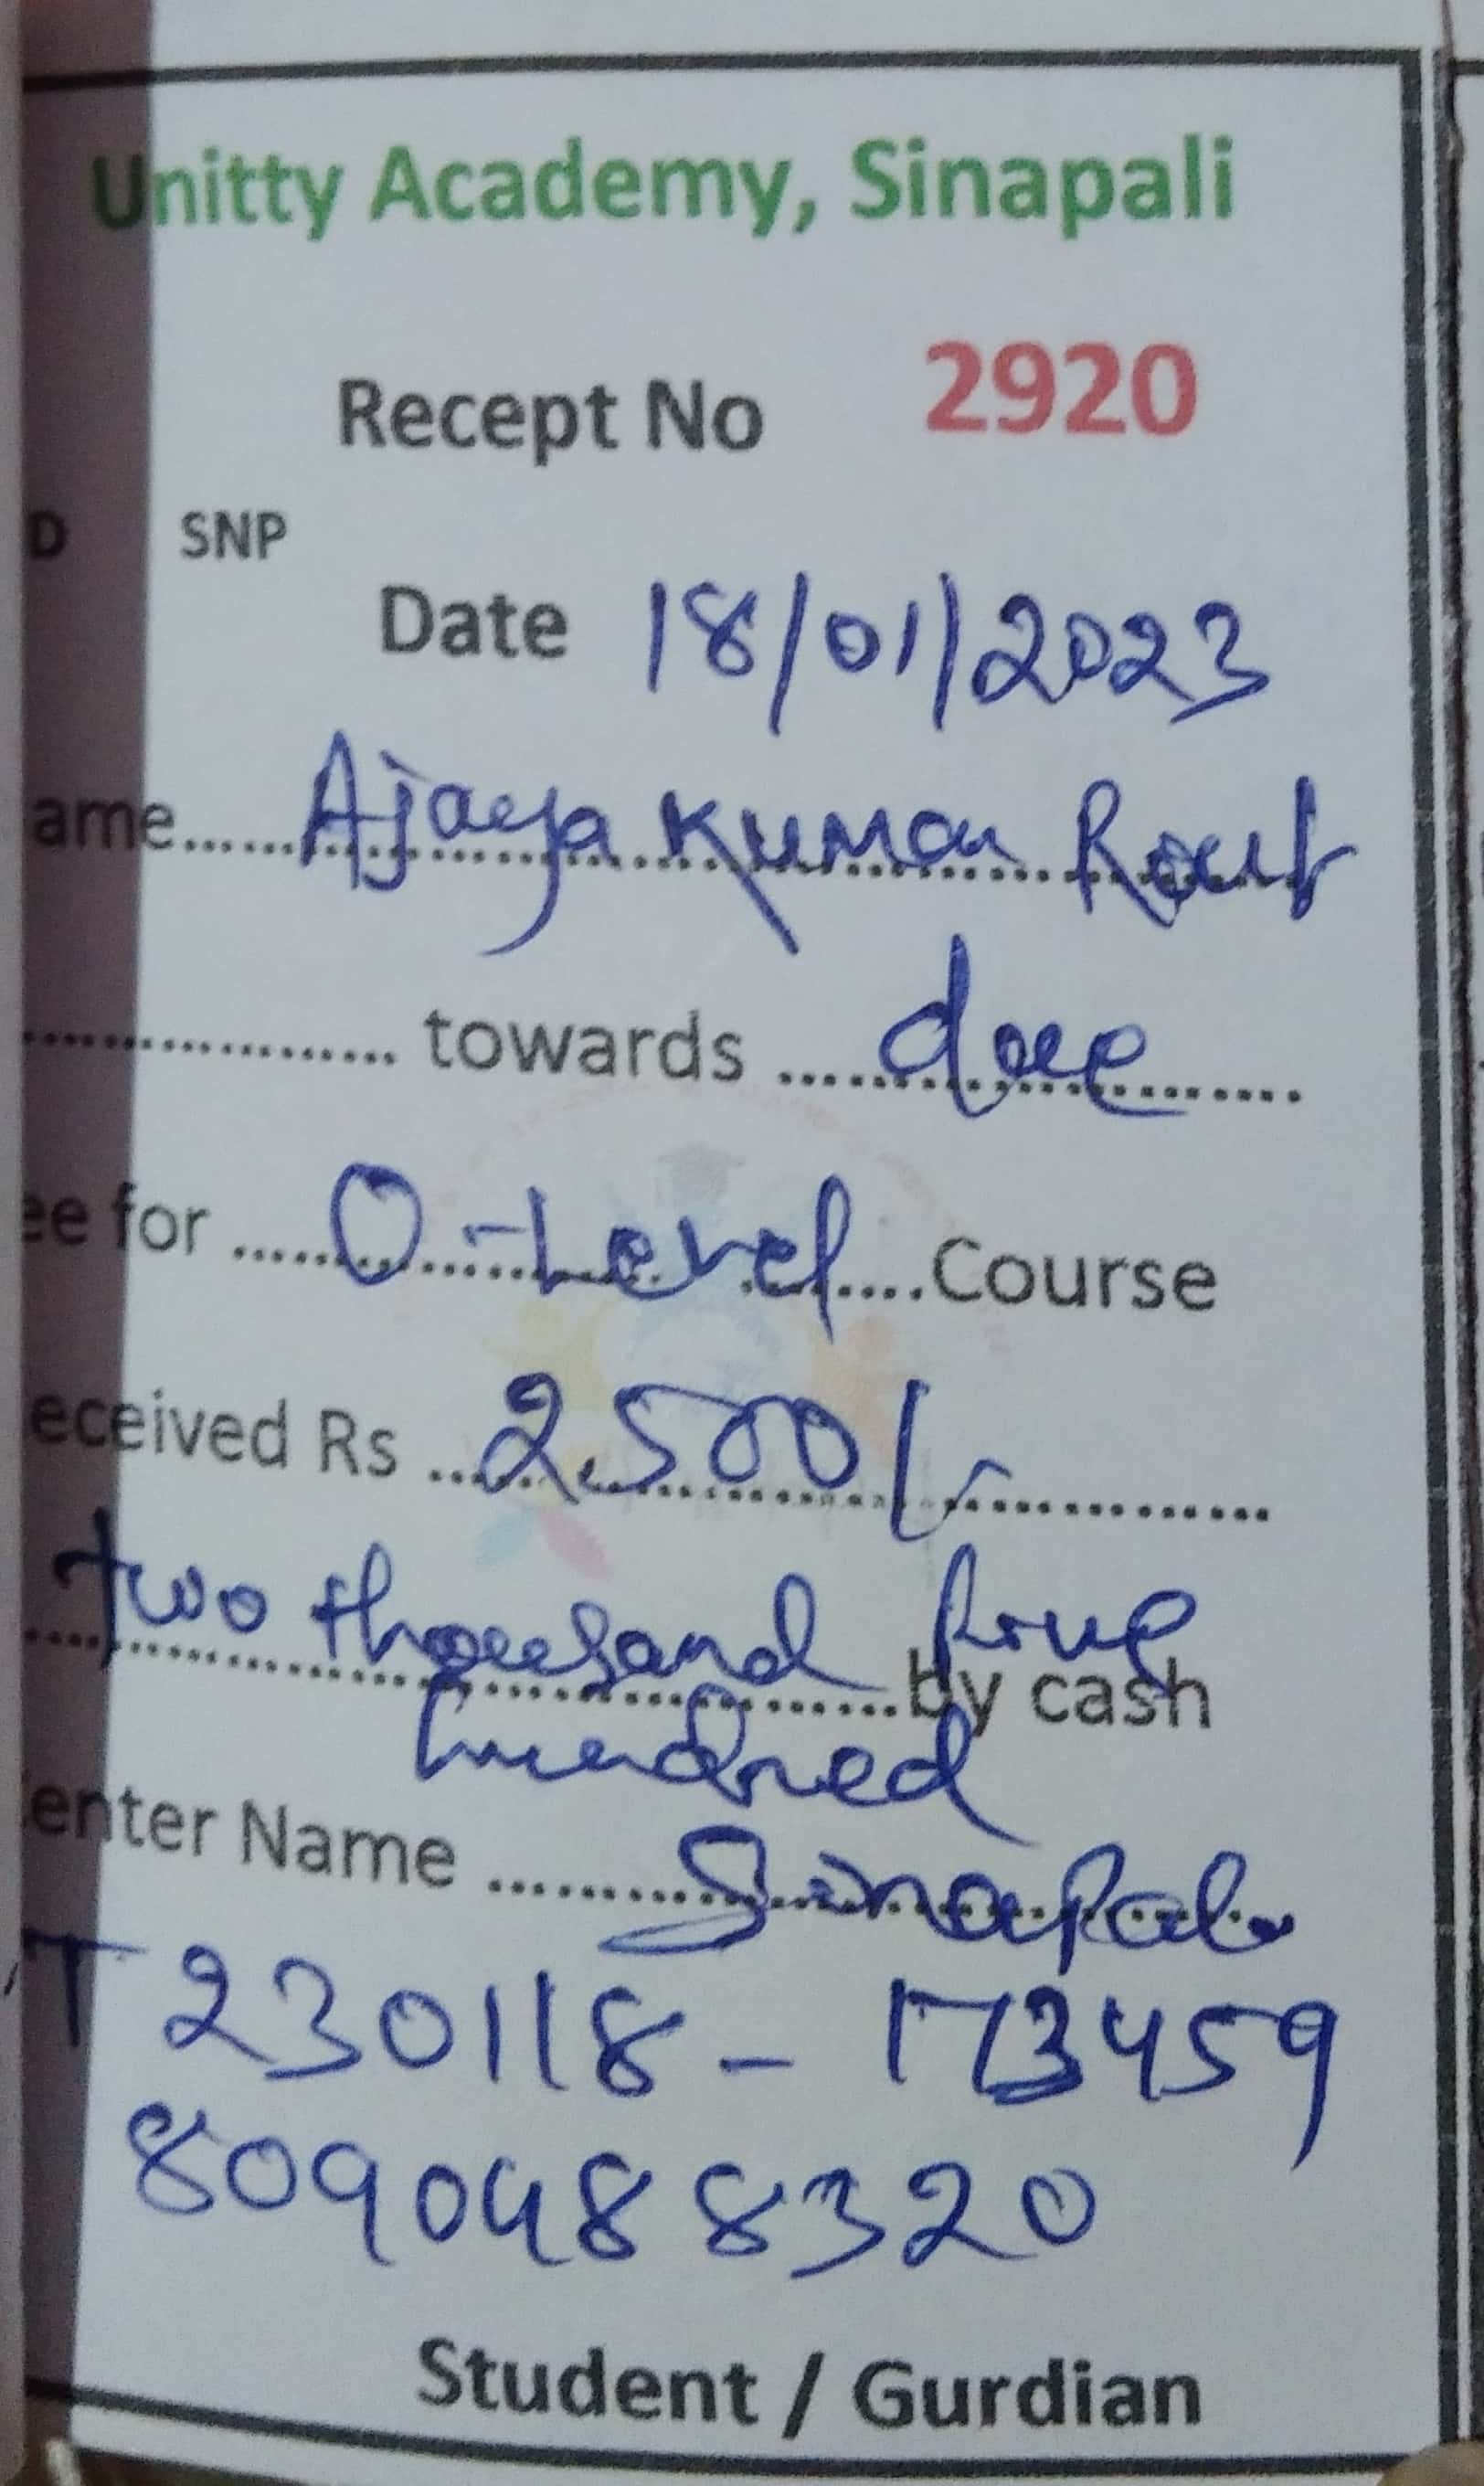 Unitty Academy, Sinapali
Recept No 2920
D SNP
Date 18/01/2023
ame...... Ajaya Kumar Rout
.................. towards .... due ........
ee for .... O-Level ....Course
eceived Rs .... 2500/- ............
two thousand five
....................by cash
hundred
enter Name .......... Sinapali
T 230118 - 173459
8090488320
Student / Gurdian